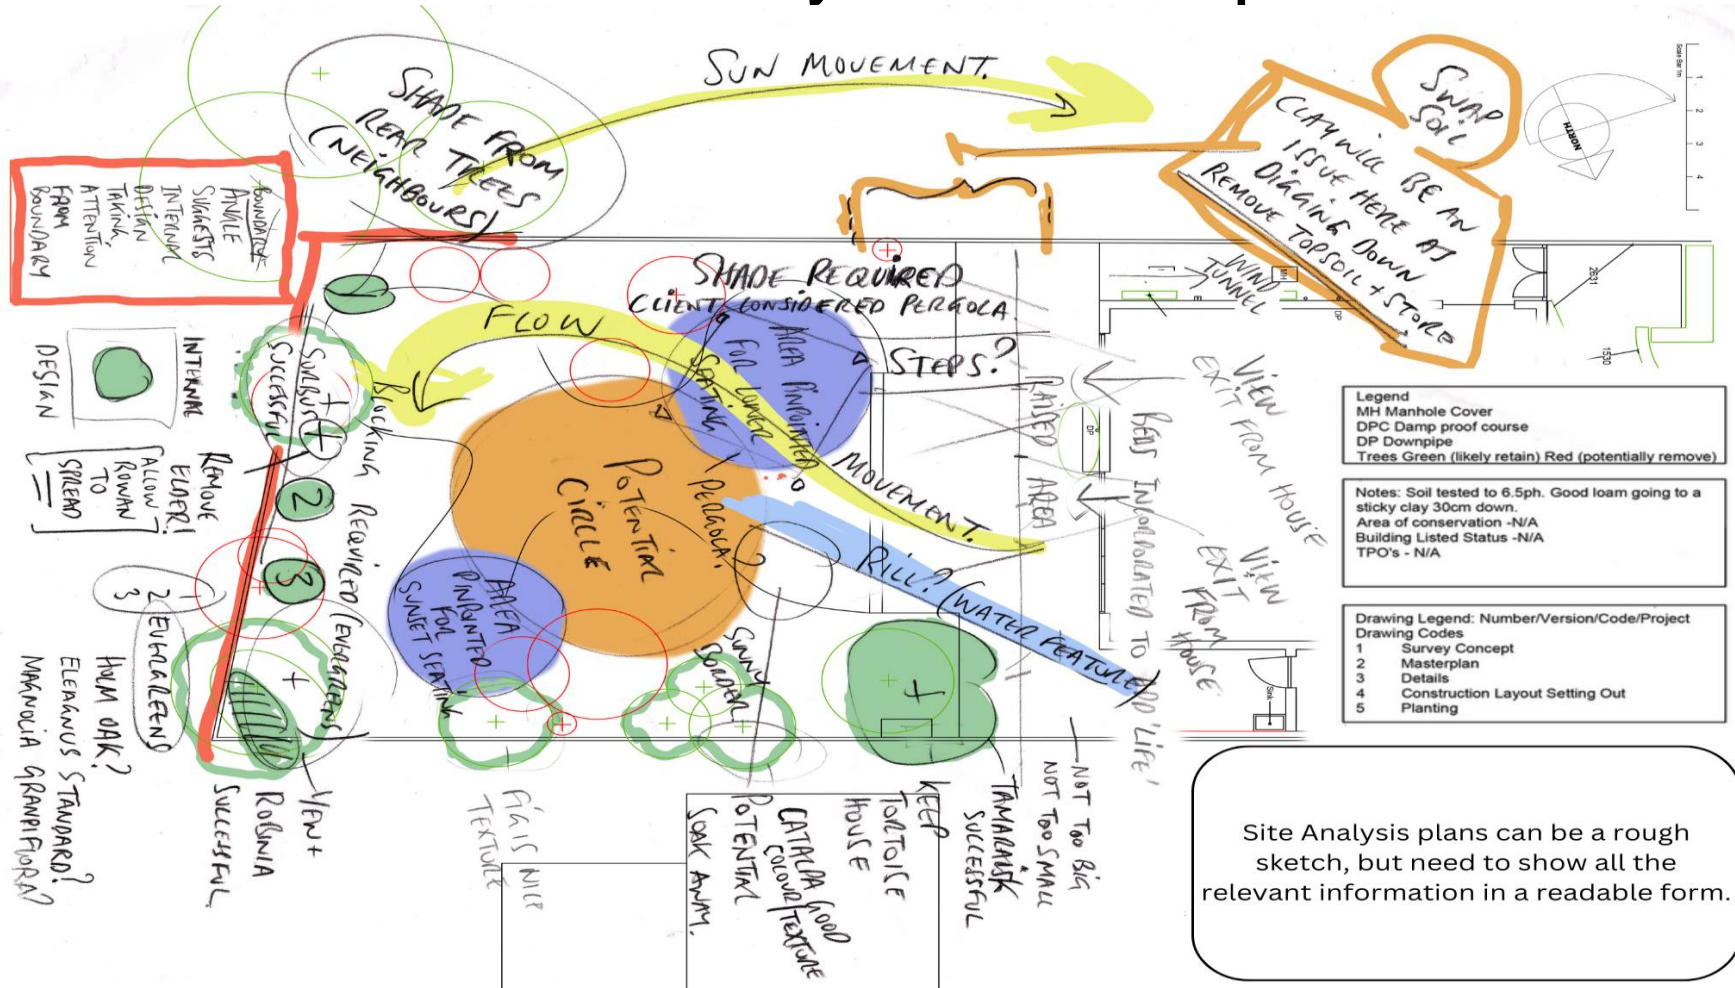 SUN MOVEMENT.
SHADE FROM
REAR TREES
(NEIGHBOURS)
SWAP
SOIL
CLAY WILL BE AN
ISSUE HERE AS
DIGGING DOWN
REMOVE TOPSOIL + STORE
NORTH
Scale Bar 1m
1
2
3
4
BOUNDARY
ANGLE
SUGGESTS
INTERNAL
DESIGN
TAKING
ATTENTION
FROM
BOUNDARY
SHADE REQUIRED
CLIENT CONSIDERED PERGOLA.
WIND
TUNNEL
MH
DP
2631
1530
FLOW
MOVEMENT.
STEPS?
AREA PINPOINTED
FOR LOWER
SEATING
RAISED AREA
DP
VIEW
EXIT FROM HOUSE
VIEW
EXIT
FROM
HOUSE
BEDS INCORPORATED TO ADD 'LIFE'
INTERNAL
DESIGN
1
SORBUS
SUCCESSFUL
BLOCKING REQUIRED (EVERGREENS)
REMOVE
ELDER!
ALLOW
ROWAN
TO
SPREAD
2
3
POTENTIAL
CIRCLE
PERGOLA?
RILL? (WATER FEATURE)
AREA
PINPOINTED
FOR
SUNSET SEATING
SUNNY
BORDER
1
2 EVERGREENS
3
HOLM OAK?
ELEAGNUS STANDARD?
MAGNOLIA GRANDIFLORA?
ROBINIA
SUCCESSFUL
FIG IS NICE
TEXTURE
CATALPA GOOD
COLOUR/TEXTURE
POTENTIAL
SOAK AWAY.
KEEP
TORTOISE
HOUSE
TAMARISK
SUCCESSFUL
NOT TOO BIG
NOT TOO SMALL
Sink
Legend
MH Manhole Cover
DPC Damp proof course
DP Downpipe
Trees Green (likely retain) Red (potentially remove)
Notes: Soil tested to 6.5ph. Good loam going to a
sticky clay 30cm down.
Area of conservation -N/A
Building Listed Status -N/A
TPO's - N/A
Drawing Legend: Number/Version/Code/Project
Drawing Codes
1 Survey Concept
2 Masterplan
3 Details
4 Construction Layout Setting Out
5 Planting
Site Analysis plans can be a rough
sketch, but need to show all the
relevant information in a readable form.